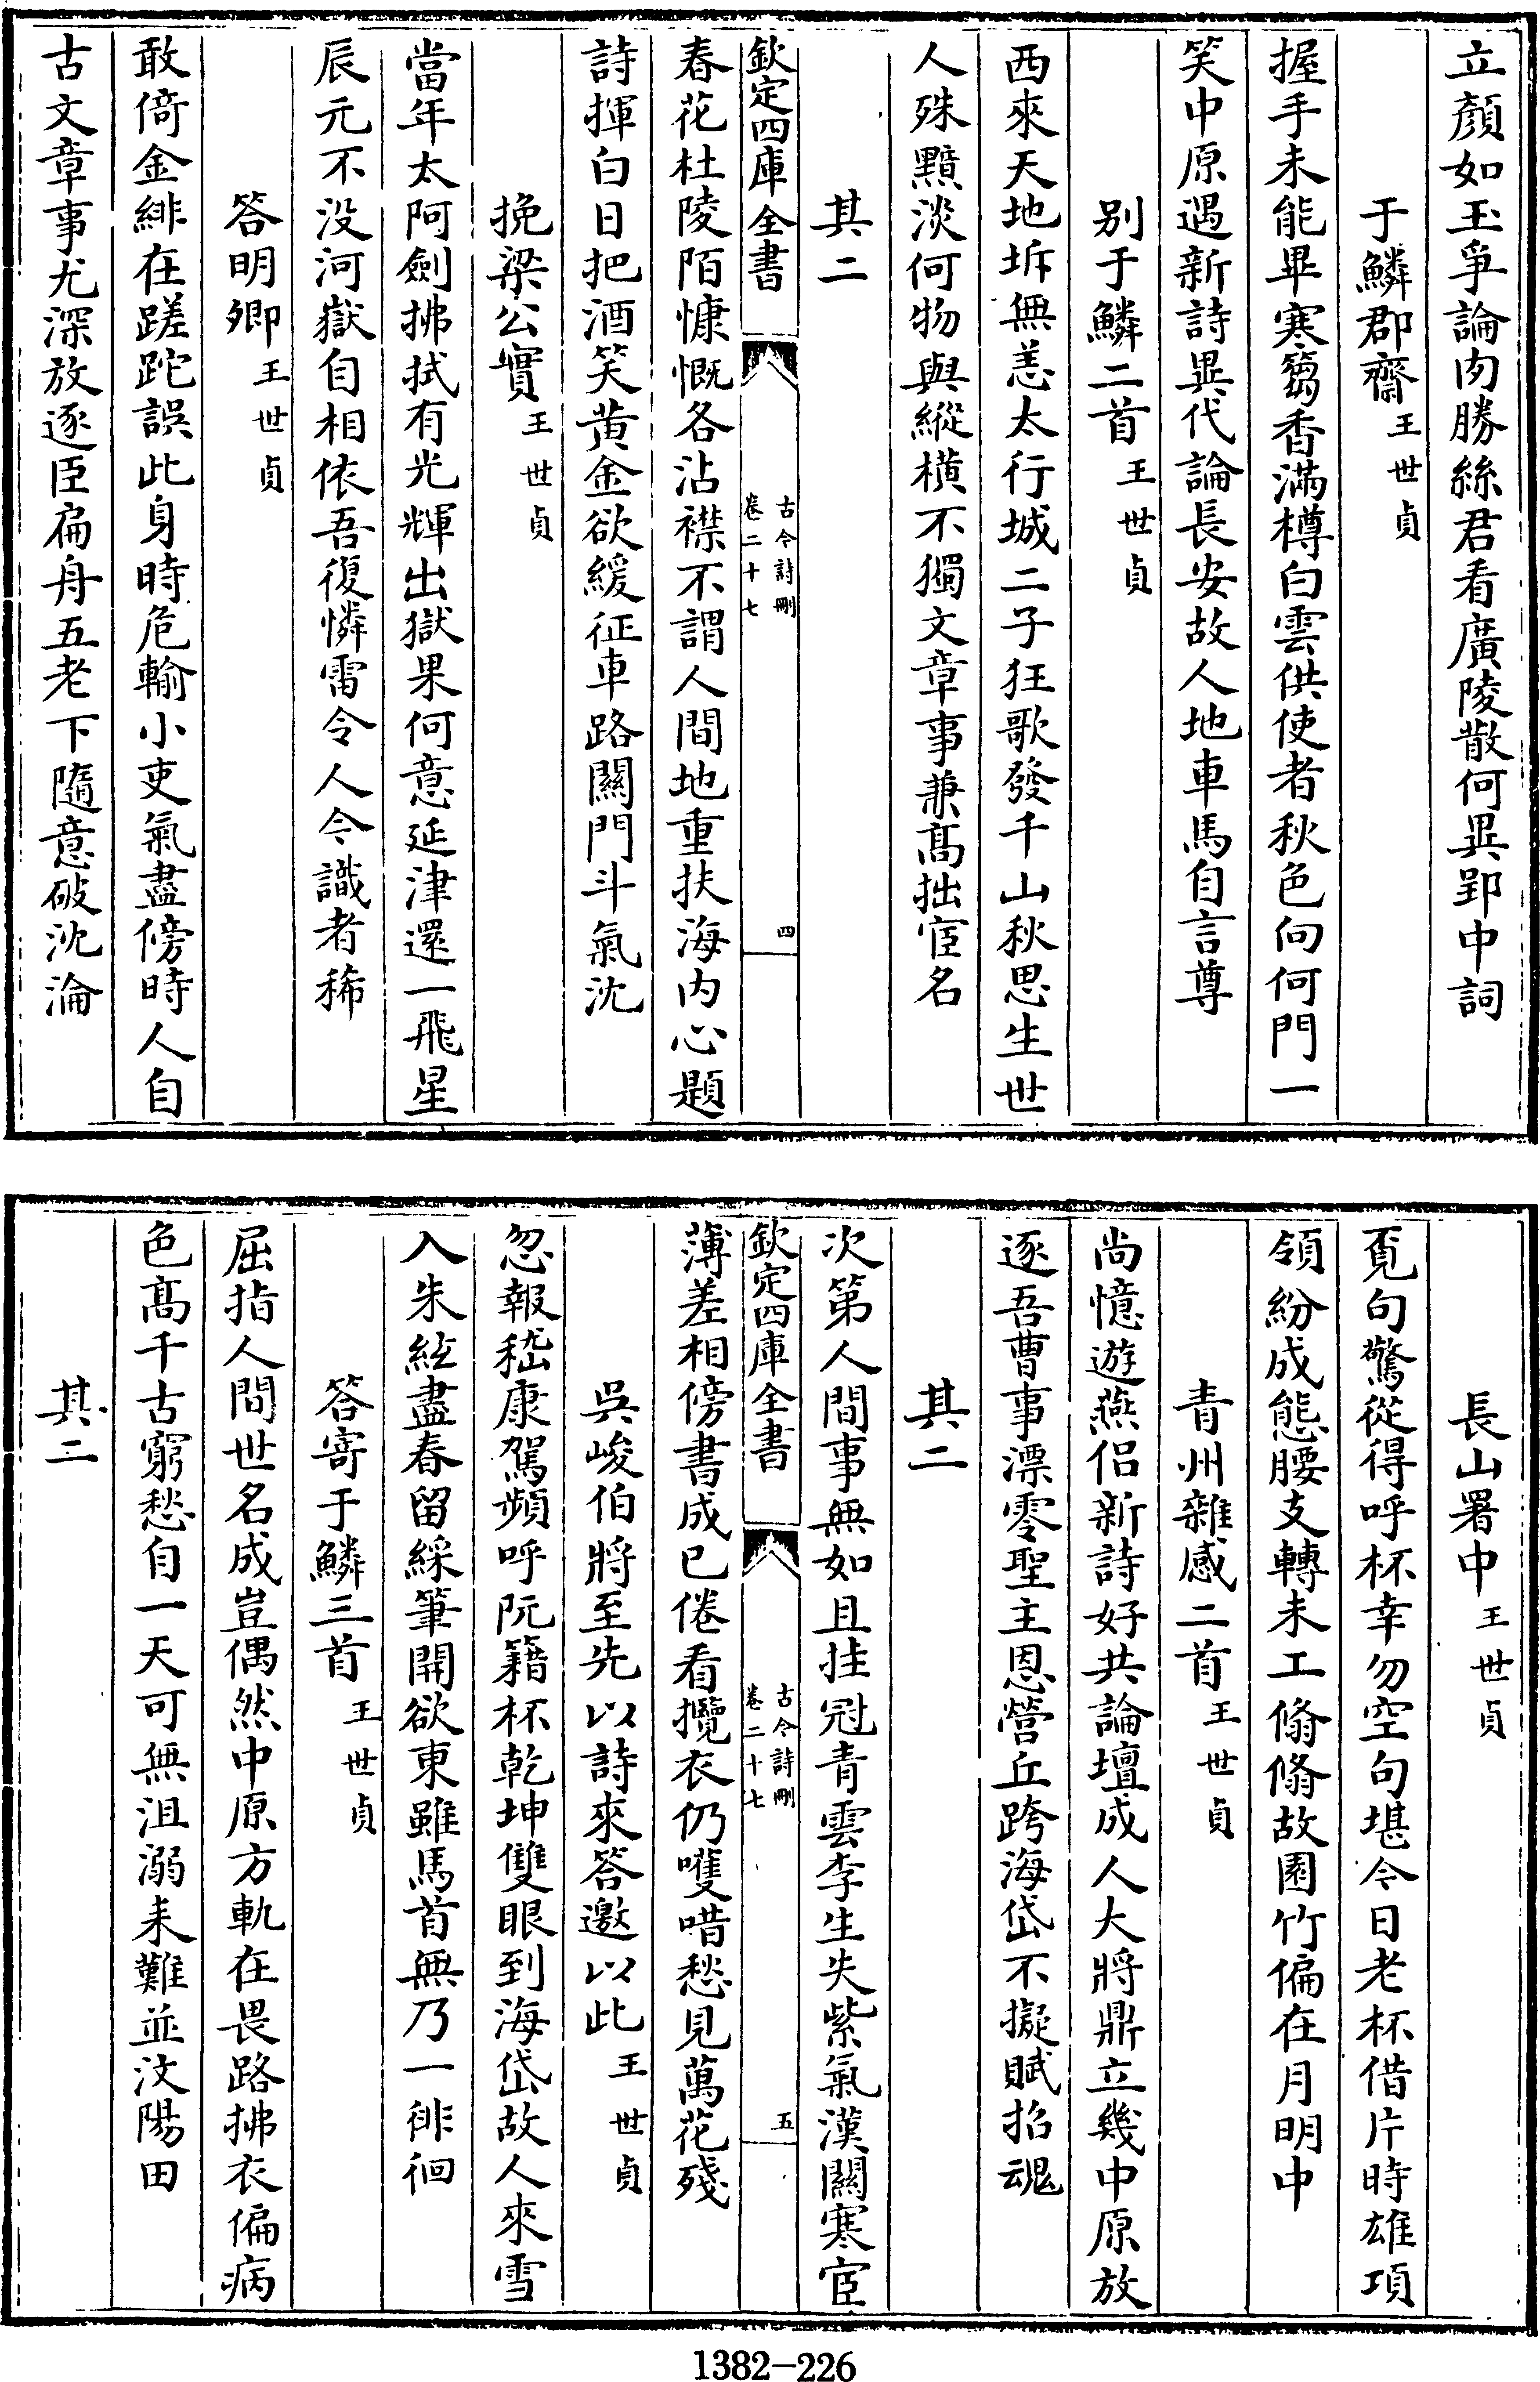 立顏如玉爭論肉勝絲君看廣陵散何異郢中詞
于鱗郡齋王世貞
握手未能畢寒蒭香滿樽白雲供使者秋色向何門一
笑中原遇新詩異代論長安故人地車馬自言尊
别于鱗二首王世貞
西來天地坼無恙太行城二子狂歌發千山秋思生世
人殊黯淡何物與縱横不獨文章事兼髙拙宦名
其二
欽定四庫全書
古今詩刪
卷二十七
四
春花杜陵陌慷慨各沾襟不謂人間地重扶海内心題
詩揮白日把酒笑黄金欲緩征車路關門斗氣沈
挽梁公實王世貞
當年太阿劍拂拭有光輝出獄果何意延津還一飛星
辰元不没河嶽自相依吾復憐雷令人令識者稀
答明卿王世貞
敢倚金緋在蹉跎誤此身時危輸小吏氣盡傍時人自
古文章事尤深放逐臣扁舟五老下隨意破沈淪
長山署中王世貞
覔句驚從得呼杯幸勿空句堪今日老杯借片時雄項
領紛成態腰支轉未工翛翛故園竹偏在月明中
青州雜感二首王世貞
尚憶遊燕侣新詩好共論壇成人大將鼎立幾中原放
逐吾曹事漂零聖主恩營丘跨海岱不擬賦招魂
其二
次第人間事無如且挂冠青雲李生失紫氣漢關寒宦
欽定四庫全書
古今詩刪
卷二十七
五
薄差相傍書成已倦看攬衣仍嚄唶愁見萬花殘
吳峻伯將至先以詩來答邀以此王世貞
忽報嵇康駕頻呼阮籍杯乾坤雙眼到海岱故人來雪
入朱絃盡春留綵筆開欲東雖馬首無乃一徘徊
答寄于鱗三首王世貞
屈指人間世名成豈偶然中原方軌在畏路拂衣偏病
色髙千古窮愁自一天可無沮溺耒難並汶陽田
其二
1382-226